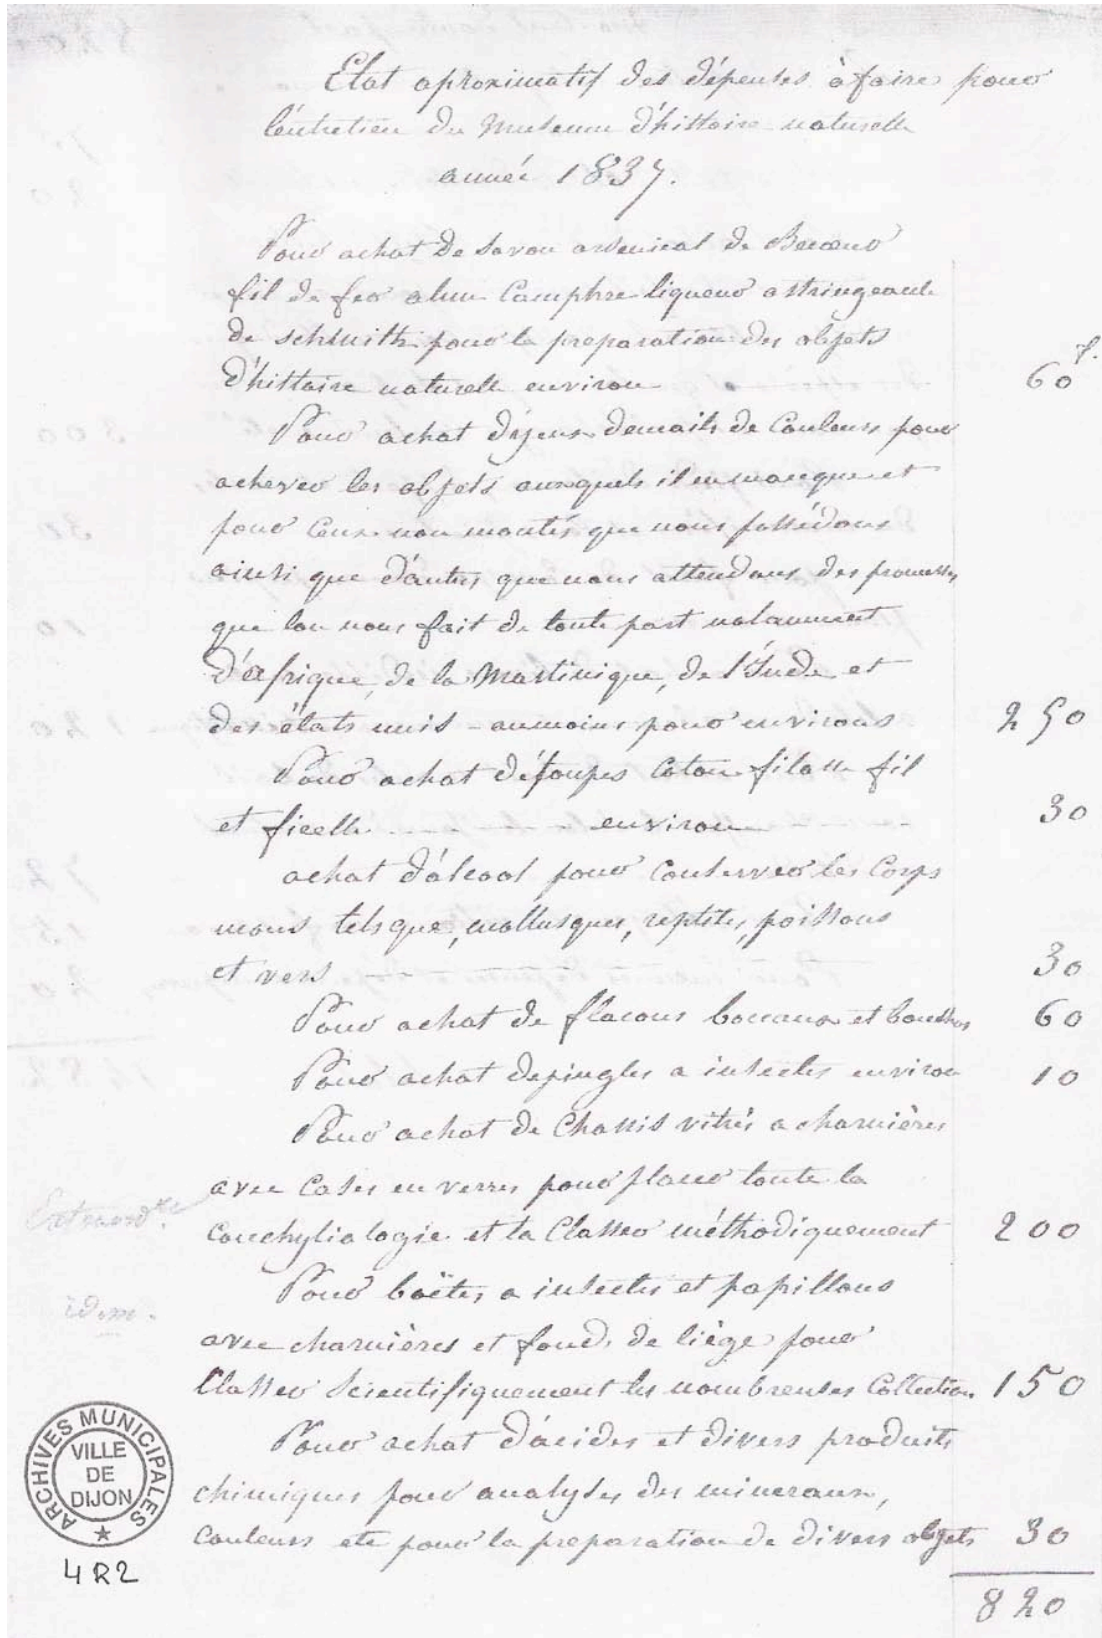 Etat aproximatif des dépenses à faire pour
l'entretien du Museum d'histoire naturelle
année 1837.
Pour achat de savon arsenical de Becœur
fil de fer alun Camphre liqueur astringeante
de schmith pour la preparation des objets
d'histoire naturelle environ 60 f.
Pour achat d'yeux d'emails de Couleurs pour
achever les objets auxquels il en manque et
pour Ceux non montés que nous possédons
ainsi que d'autres que nous attendons des promesses
que l'on nous fait de toute part notamment
d'afrique, de la Martinique, de l'Inde et
des états unis - aumoins pour environs 250
Pour achat d'étoupes Coton filasse fil
et ficelle environ 30
achat d'alcool pour Conserver les Corps
mous tels que, mollusques, reptiles, poissons
et vers 30
Pour achat de flacons bocaux et bouchons 60
Pour achat depingles a insectes environ 10
Pour achat de Chassis vitrés a charnières
avec Cases en verres pour placer toute la
Extraord.re
Conchyliologie et la Classer méthodiquement 200
Pour boëtes a insectes et papillons
idem.
avec charnières et fonds de liège pour
Classer Scientifiquement les nombreuses Collection 150
Pour achat d'acides et divers produits
chimiques pour analyses des mineraux,
Couleurs etc pour la preparation de divers objets 30
820
ARCHIVES MUNICIPALES
VILLE
DE
DIJON
4R2